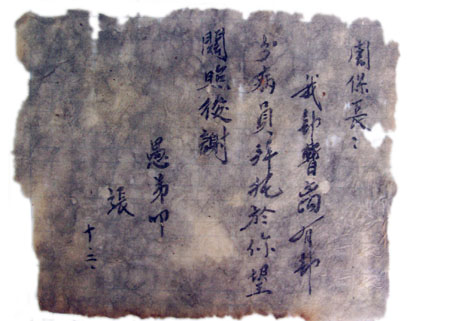 周保長：
我部暫留有部
分病員拜托於你望
關照後謝
愚弟叩
張
十.二.